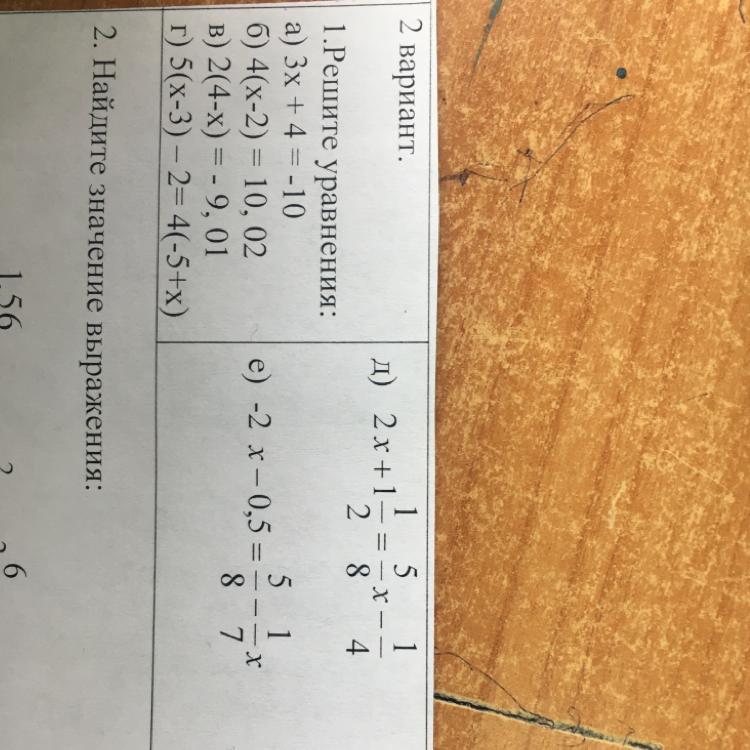 2 вариант.
1.Решите уравнения:
а) 3х + 4 = -10
б) 4(х-2) = 10, 02
в) 2(4-х) = - 9, 01
г) 5(х-3) – 2= 4(-5+х)
д) 2x + 1 1/2 = 5/8 x − 1/4
е) -2 x − 0,5 = 5/8 − 1/7 x
2. Найдите значение выражения:
1,56